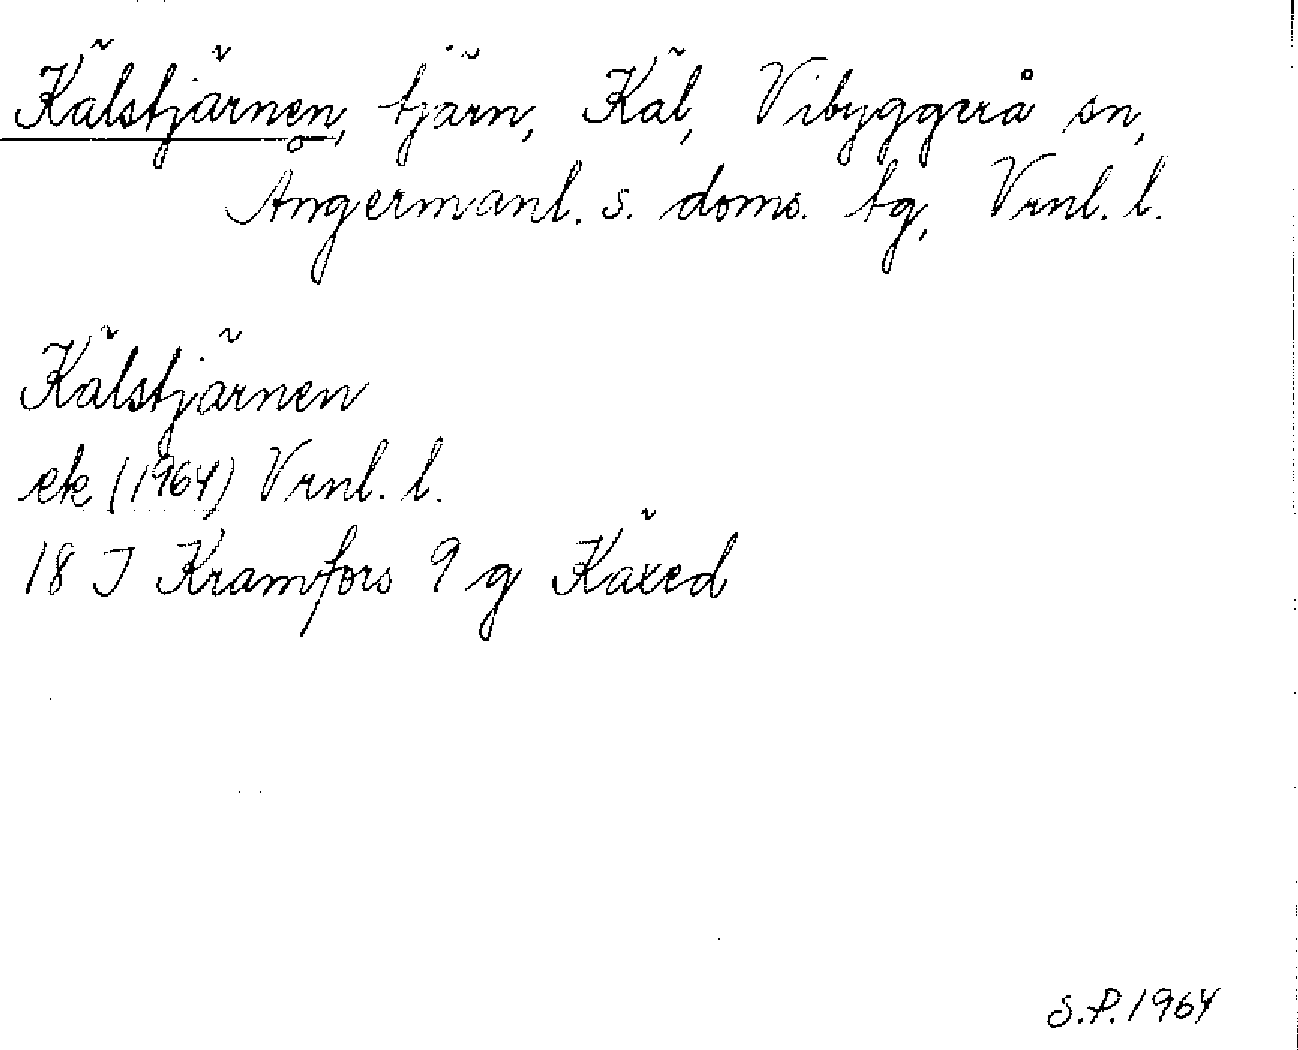 Kälstjärnen, tjärn, Käl, Vibyggerå sn,
Ångermanl. s. doms. tg, Vrnl. l.
Kälstjärnen
ek (1964) Vrnl. l.
18 J Kramfors 9 g Käxed
S.P. 1964